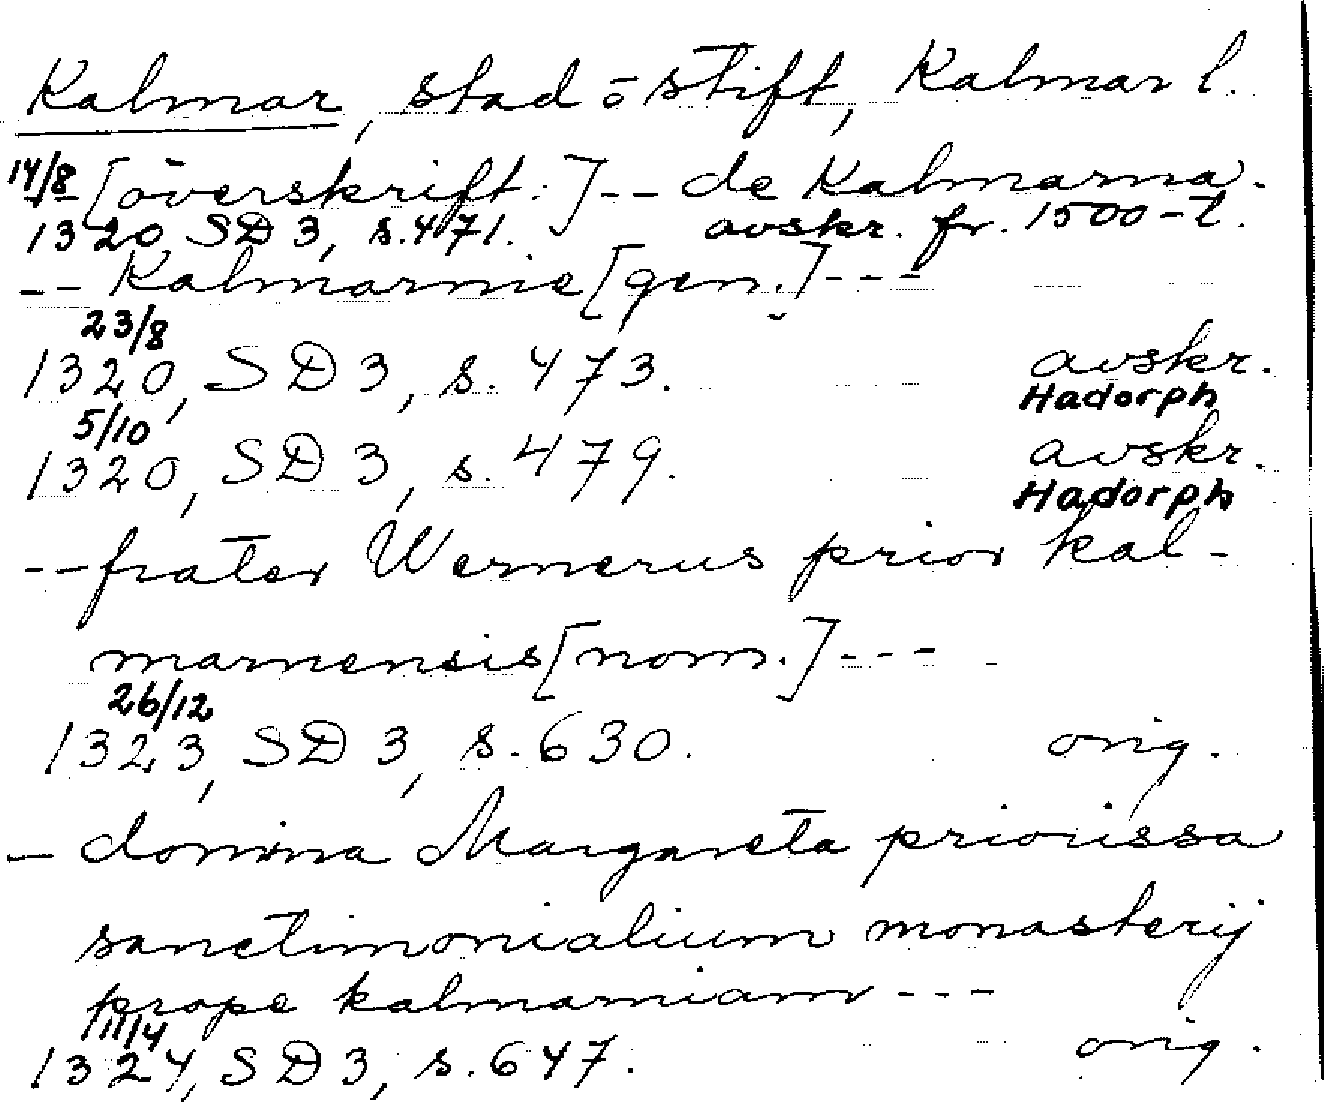 Kalmar, stad o stift, Kalmar l.
14/8 [överskrift:] -- de Kalmarnia.
1320 SD 3, s. 471. avskr. fr. 1500-t.
-- Kalmarnie [gen.] ---
23/8
1320, SD 3, s. 473. avskr.
Hadorph
5/10
1320, SD 3, s. 479. avskr.
Hadorph
-- frater Wernerus prior kal-
marnensis [nom.] ---
26/12
1323, SD 3, s. 630. orig.
- domina Margareta priorissa
sanctimonialium monasterij
prope kalmarniam ---
11/4
1324, SD 3, s. 647. orig.